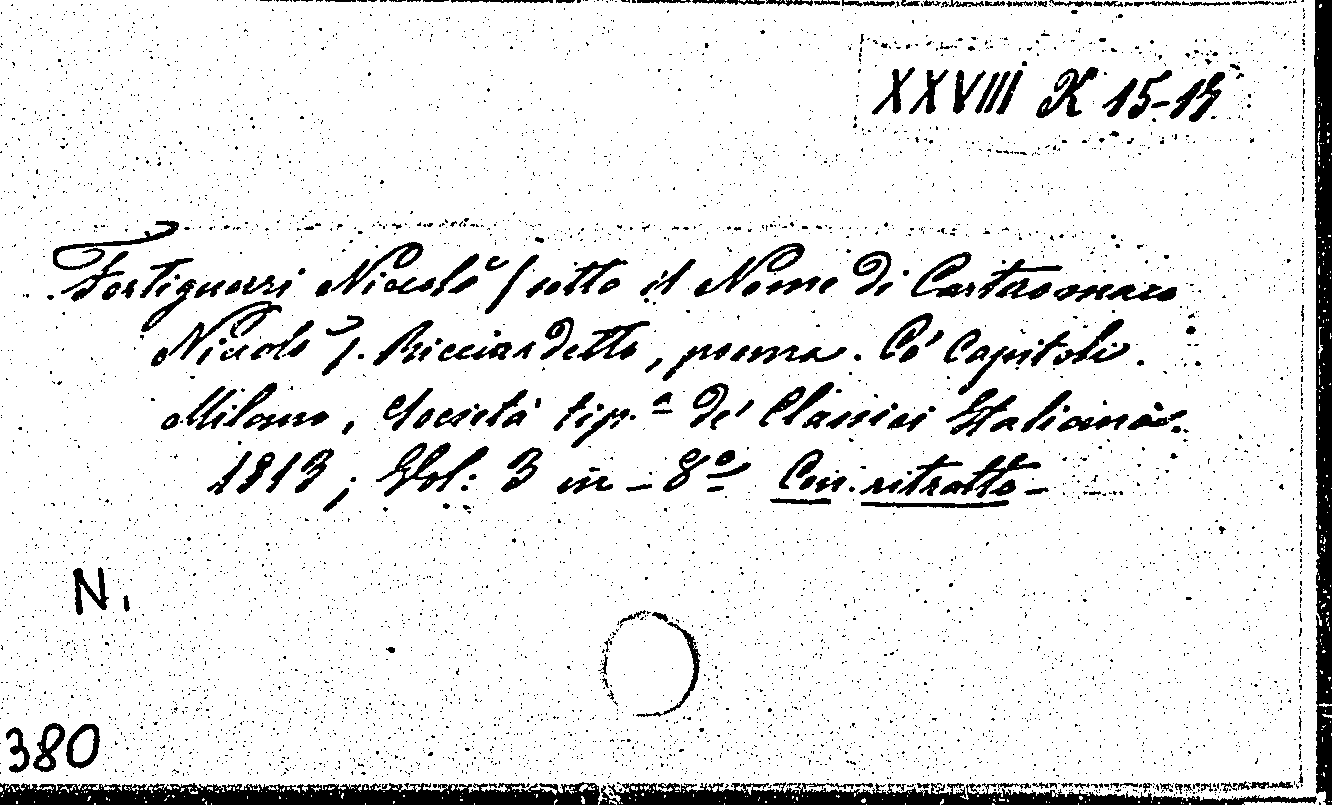 XXVIII K 15-17
Fortiguerri Niccolò (sotto il Nome di Carteromaco
Niccolò). Ricciardetto, poema. Co' Capitoli.
Milano, Società tip.ª de' Classici Italiani.
1813; Vol: 3 in-8º Con ritratto-
N.
380